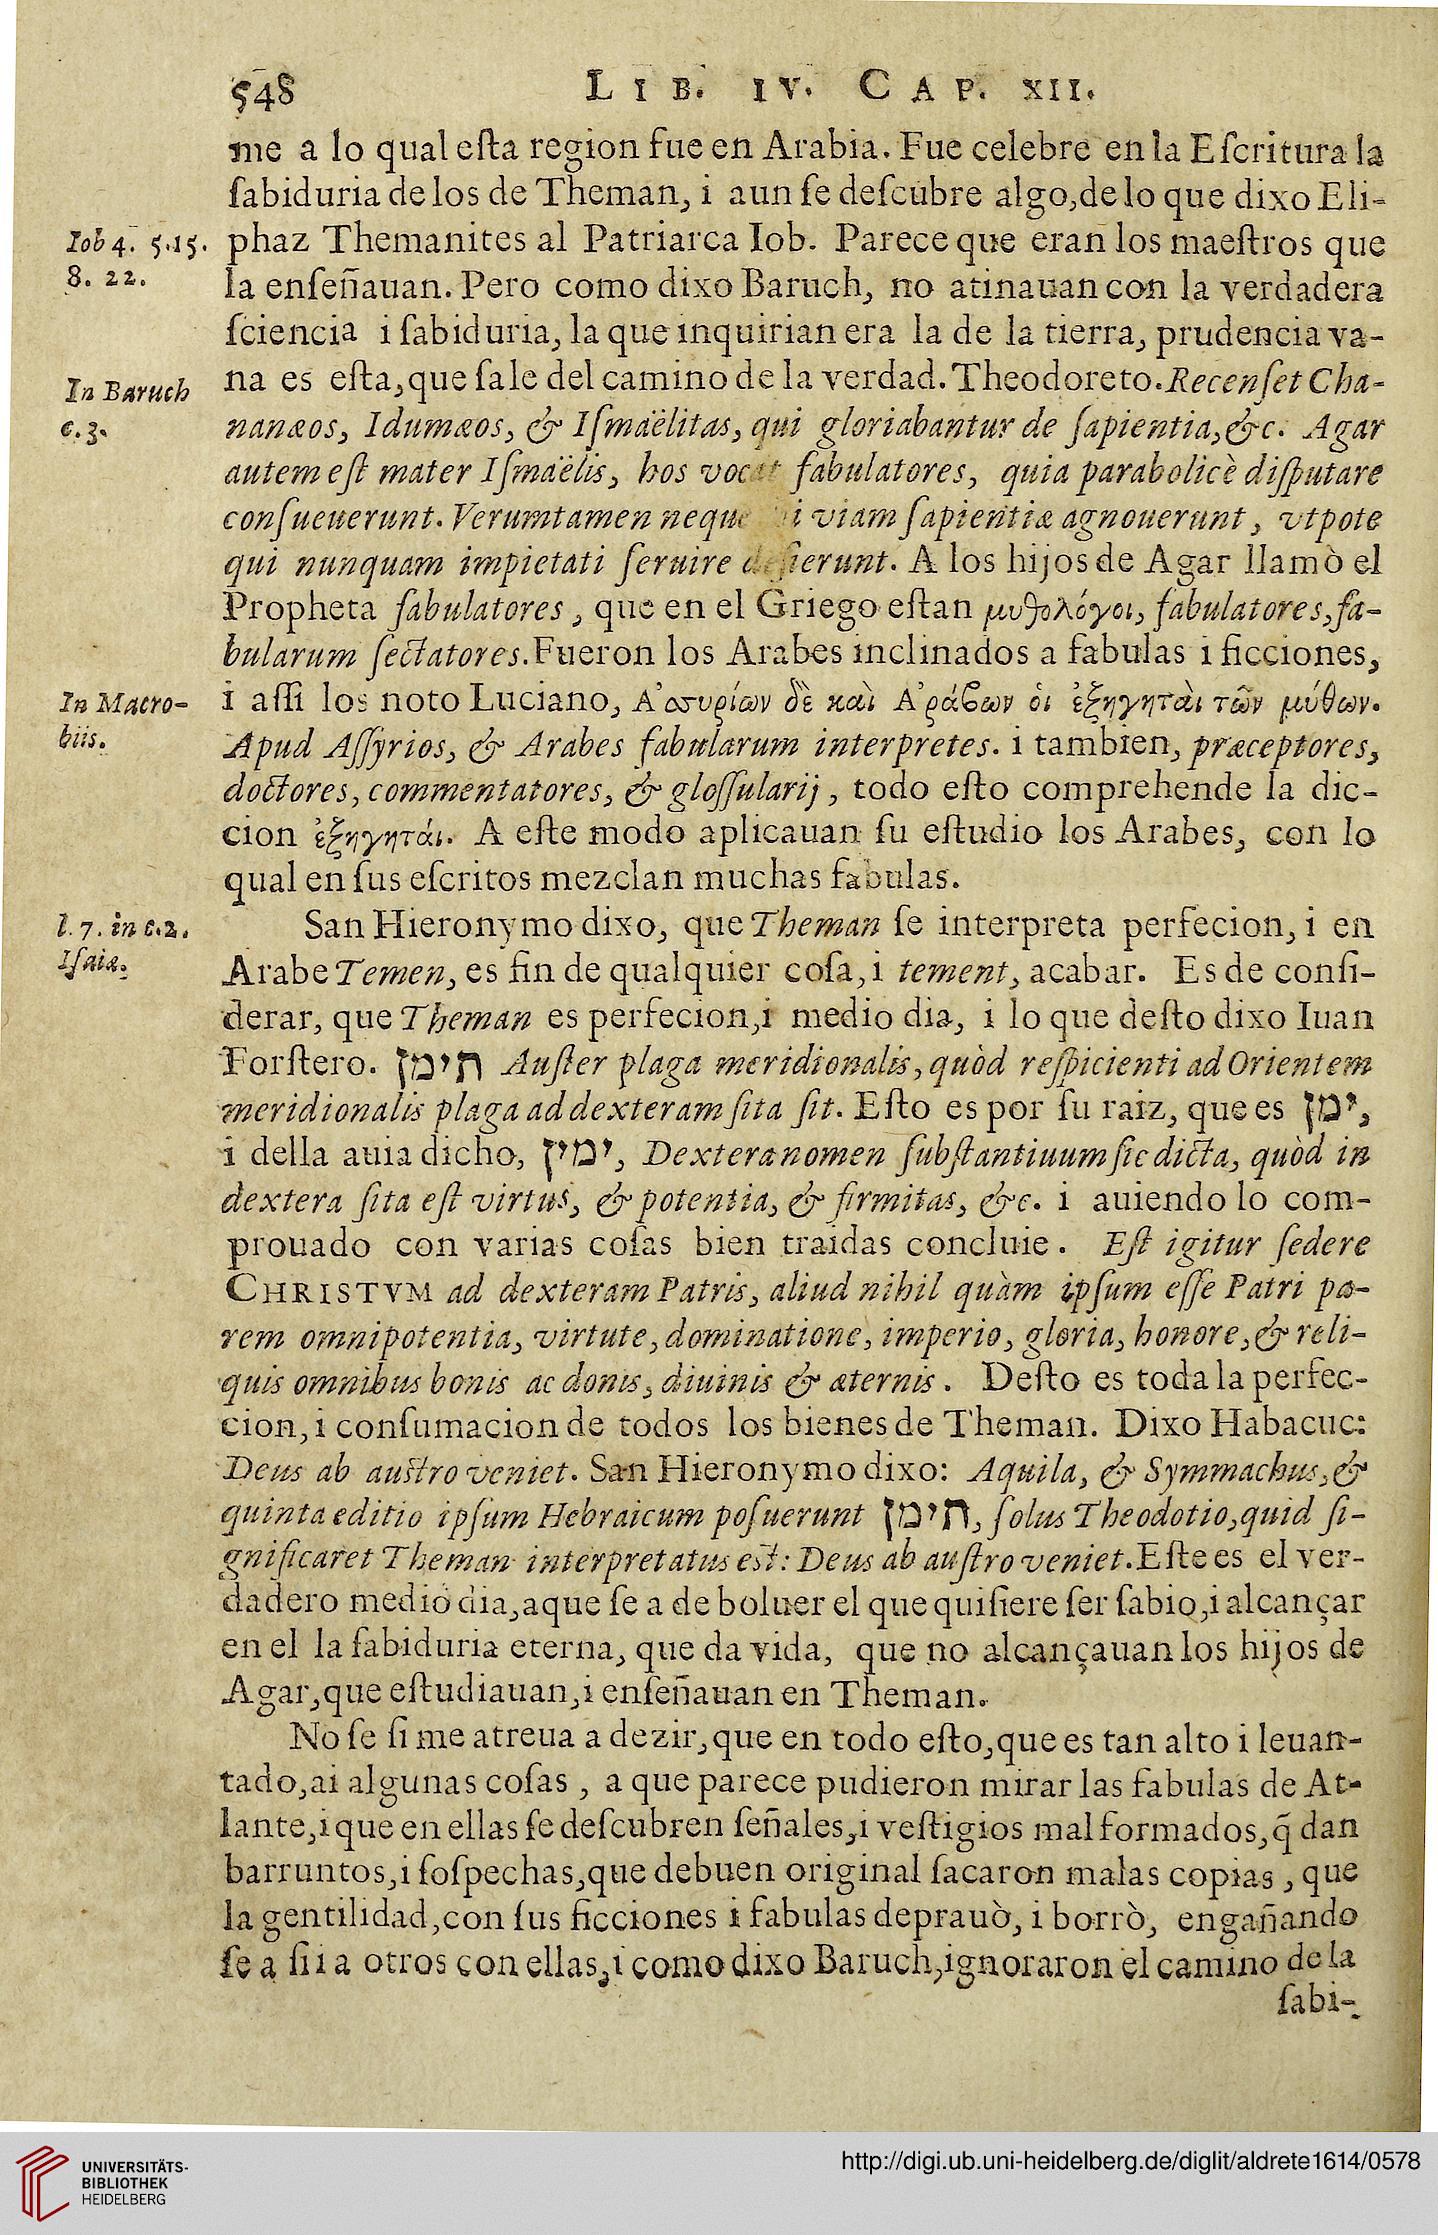 548
LIB. IV. CAP. XII.
me a lo qual eſta region fue en Arabia. Fue celebre en la Eſcritura la
ſabiduria de los de Theman, i aun ſe deſcubre algo, de lo que dixo Eli-
Iob 4. 5. 15.
8. 22.
phaz Themanites al Patriarca Iob. Parece que eran los maeſtros que
la enſeñauan. Pero como dixo Baruch, no atinauan con la verdadera
ſciencia i ſabiduria, la que inquirian era la de la tierra, prudencia va-
In Baruch
c. 3.
na es eſta, que ſale del camino de la verdad. Theodoreto. Recenſet Cha-
nanæos, Idumæos, & Iſmaëlitas, qui gloriabantur de ſapientia, &c. Agar
autem eſt mater Iſmaëlis, hos vocat fabulatores, quia parabolicè diſputare
conſueuerunt. Verumtamen neque i viam ſapientiæ agnouerunt, vtpote
qui nunquam impietati ſeruire deſierunt. A los hijos de Agar llamò el
Propheta fabulatores, que en el Griego eſtan μυθολόγοι, fabulatores, fa-
bularum ſectatores. Fueron los Arabes inclinados a fabulas i ficciones,
In Macro-
biis.
i aſſi los noto Luciano, Α᾿συρίων δὲ καὶ Α᾿ράβων ὁι ἐξηγητὰι τῶν μύθων.
Apud Aſſyrios, & Arabes fabularum interpretes. i tambien, præceptores,
doctores, commentatores, & gloſſularij, todo eſto comprehende la dic-
cion ἐξηγητάι. A eſte modo aplicauan ſu eſtudio los Arabes, con lo
qual en ſus eſcritos mezclan muchas fabulas.
l. 7. in c. 2.
Iſaiæ.
San Hieronymo dixo, que Theman ſe interpreta perfecion, i en
Arabe Temen, es fin de qualquier coſa, i tement, acabar. Es de conſi-
derar, que Theman es perfecion, i medio dia, i lo que deſto dixo Iuan
Forſtero. תימן Auſter plaga meridionalis, quòd reſpicienti ad Orientem
meridionalis plaga ad dexteram ſita ſit. Eſto es por ſu raiz, que es ימן,
i della auia dicho, ימין, Dextera nomen ſubſtantiuum ſic dicta, quòd in
dextera ſita eſt virtus, & potentia, & firmitas, &c. i auiendo lo com-
prouado con varias coſas bien traidas concluie. Eſt igitur ſedere
CHRISTVM ad dexteram Patris, aliud nihil quàm ipſum eſſe Patri pa-
rem omnipotentia, virtute, dominatione, imperio, gloria, honore, & reli-
quis omnibus bonis ac donis, diuinis & æternis. Deſto es toda la perfec-
cion, i conſumacion de todos los bienes de Theman. Dixo Habacuc:
Deus ab auſtro veniet. San Hieronymo dixo: Aquila, & Symmachus, &
quinta editio ipſum Hebraicum poſuerunt תימן, ſolus Theodotio, quid ſi-
gnificaret Theman interpretatus eſt: Deus ab auſtro veniet. Eſte es el ver-
dadero medio dia, aque ſe a de boluer el que quiſiere ſer ſabio, i alcançar
en el la ſabiduria eterna, que da vida, que no alcançauan los hijos de
Agar, que eſtudiauan, i enſeñauan en Theman.
No ſe ſi me atreua a dezir, que en todo eſto, que es tan alto i leuan-
tado, ai algunas coſas, a que parece pudieron mirar las fabulas de At-
lante, i que en ellas ſe deſcubren ſeñales, i veſtigios mal formados, q̃ dan
barruntos, i ſoſpechas, que debuen original ſacaron malas copias, que
la gentilidad, con ſus ficciones i fabulas deprauò, i borrò, engañando
ſe a ſi i a otros con ellas, i como dixo Baruch, ignoraron el camino de la
ſabi-
UNIVERSITÄTS-
BIBLIOTHEK
HEIDELBERG
http://digi.ub.uni-heidelberg.de/diglit/aldrete1614/0578